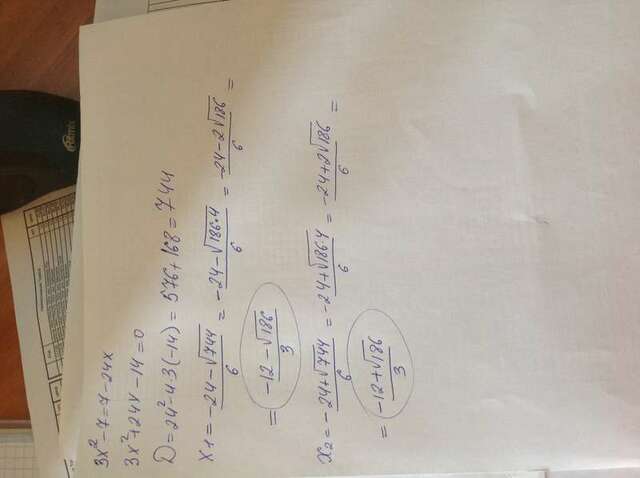 3x² - 7 = 7 - 24x
3x² + 24x - 14 = 0
D = 24² - 4·3(-14) = 576 + 168 = 744
x1 = (-24 - √744)/6 = (-24 - √(186·4))/6 = (-24 - 2√186)/6 =
= (-12 - √186)/3
x2 = (-24 + √744)/6 = (-24 + √(186·4))/6 = (-24 + 2√186)/6 =
= (-12 + √186)/3